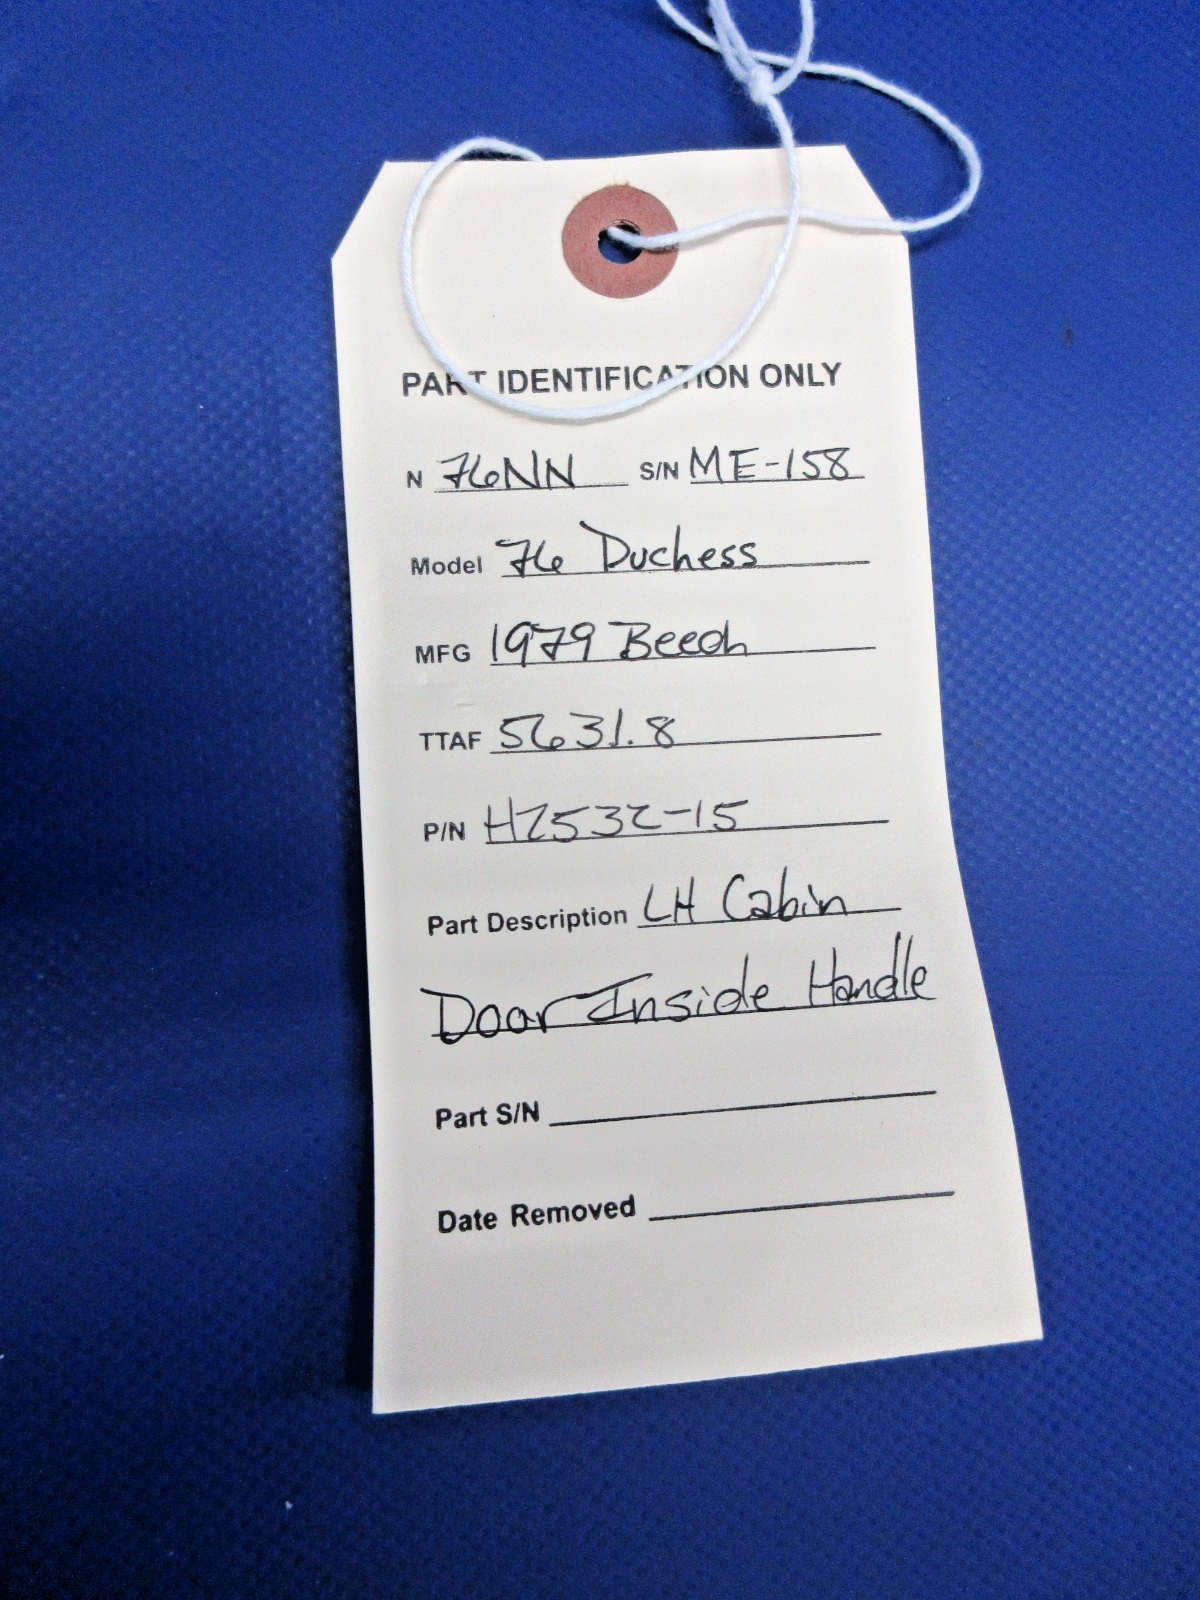 PART IDENTIFICATION ONLY
N 76NN S/N ME-158
Model 76 Duchess
MFG 1979 Beech
TTAF 5631.8
P/N H2532-15
Part Description LH Cabin
Door Inside Handle
Part S/N
Date Removed